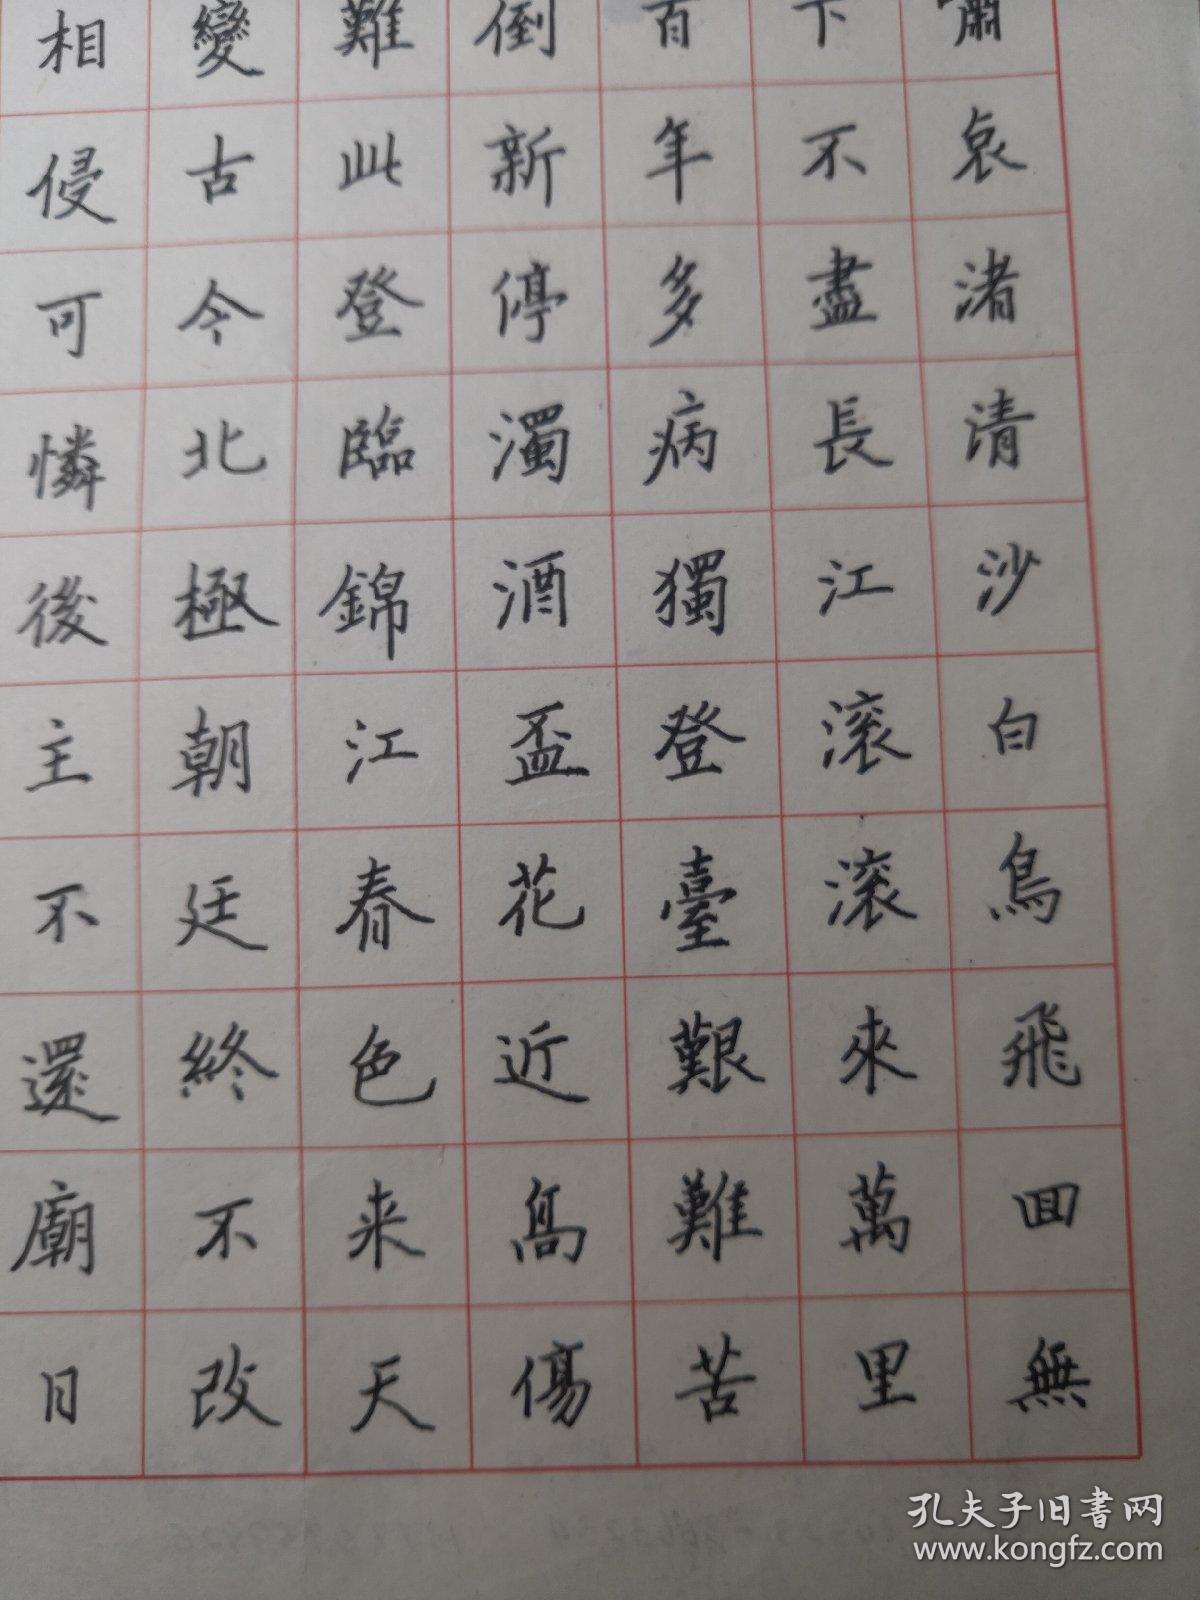 嘯哀渚清沙白鳥飛回無
下不盡長江滾滾來萬里
百年多病獨登臺艱難苦
倒新停濁酒盃花近高傷
難此登臨錦江春色来天
變古今北極朝廷終不改
相侵可憐後主不還廟日
孔夫子旧书网
www.kongfz.com